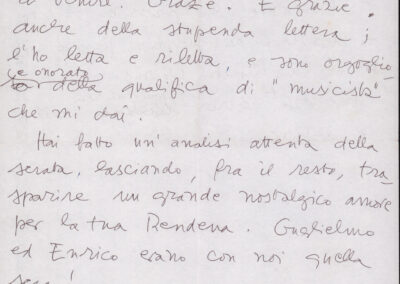 venire. Grazie. E grazie
anche della stupenda lettera;
l'ho letta e riletta, e sono orgoglio-
(e onorato)
so della qualifica di "musicista"
che mi dai.
Hai fatto un'analisi attenta della
serata, lasciando, fra il resto, tra-
sparire un grande nostalgico amore
per la tua Rendena. Guglielmo
ed Enrico erano con noi quella
sera!